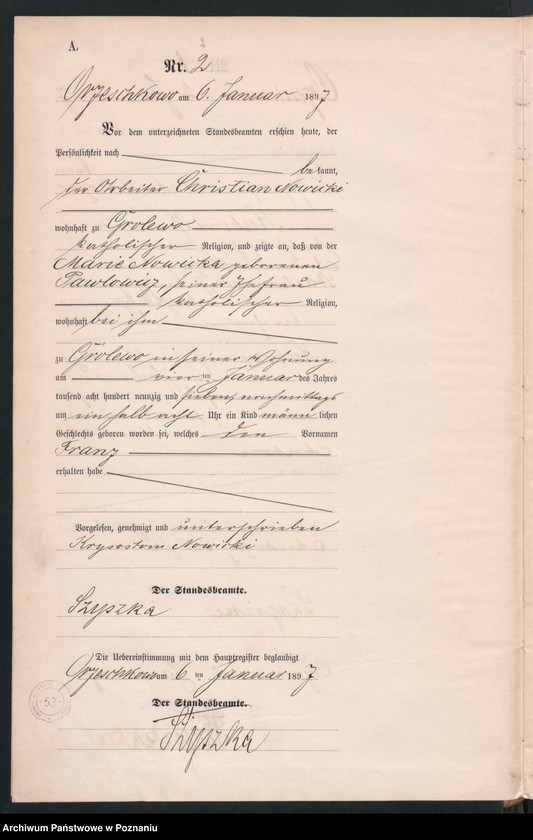 A.
2
Nr. 2
Orzeschkowo am 6. Januar 1897
Vor dem unterzeichneten Standesbeamten erschien heute, der
Persönlichkeit nach bekannt,
der Arbeiter Christian Nowicki
wohnhaft zu Grolewo
katholischer Religion, und zeigte an, daß von der
Marie Nowicka geborenen
Pawlowicz, seiner Ehefrau
katholischer Religion,
wohnhaft bei ihm
zu Grolewo in seiner Wohnung
am vier ten Januar des Jahres
tausend acht hundert neunzig und sieben, nachmittags
um ein halb acht Uhr ein Kind männlichen
Geschlechts geboren worden sei, welches den Vornamen
Franz
erhalten habe
Vorgelesen, genehmigt und unterschrieben
Krysostom Nowicki
Der Standesbeamte.
Szypszka
Die Uebereinstimmung mit dem Hauptregister beglaubigt
Orzeschkowo am 6 ten Januar 1897
Der Standesbeamte.
Szypszka
53
Archiwum Państwowe w Poznaniu